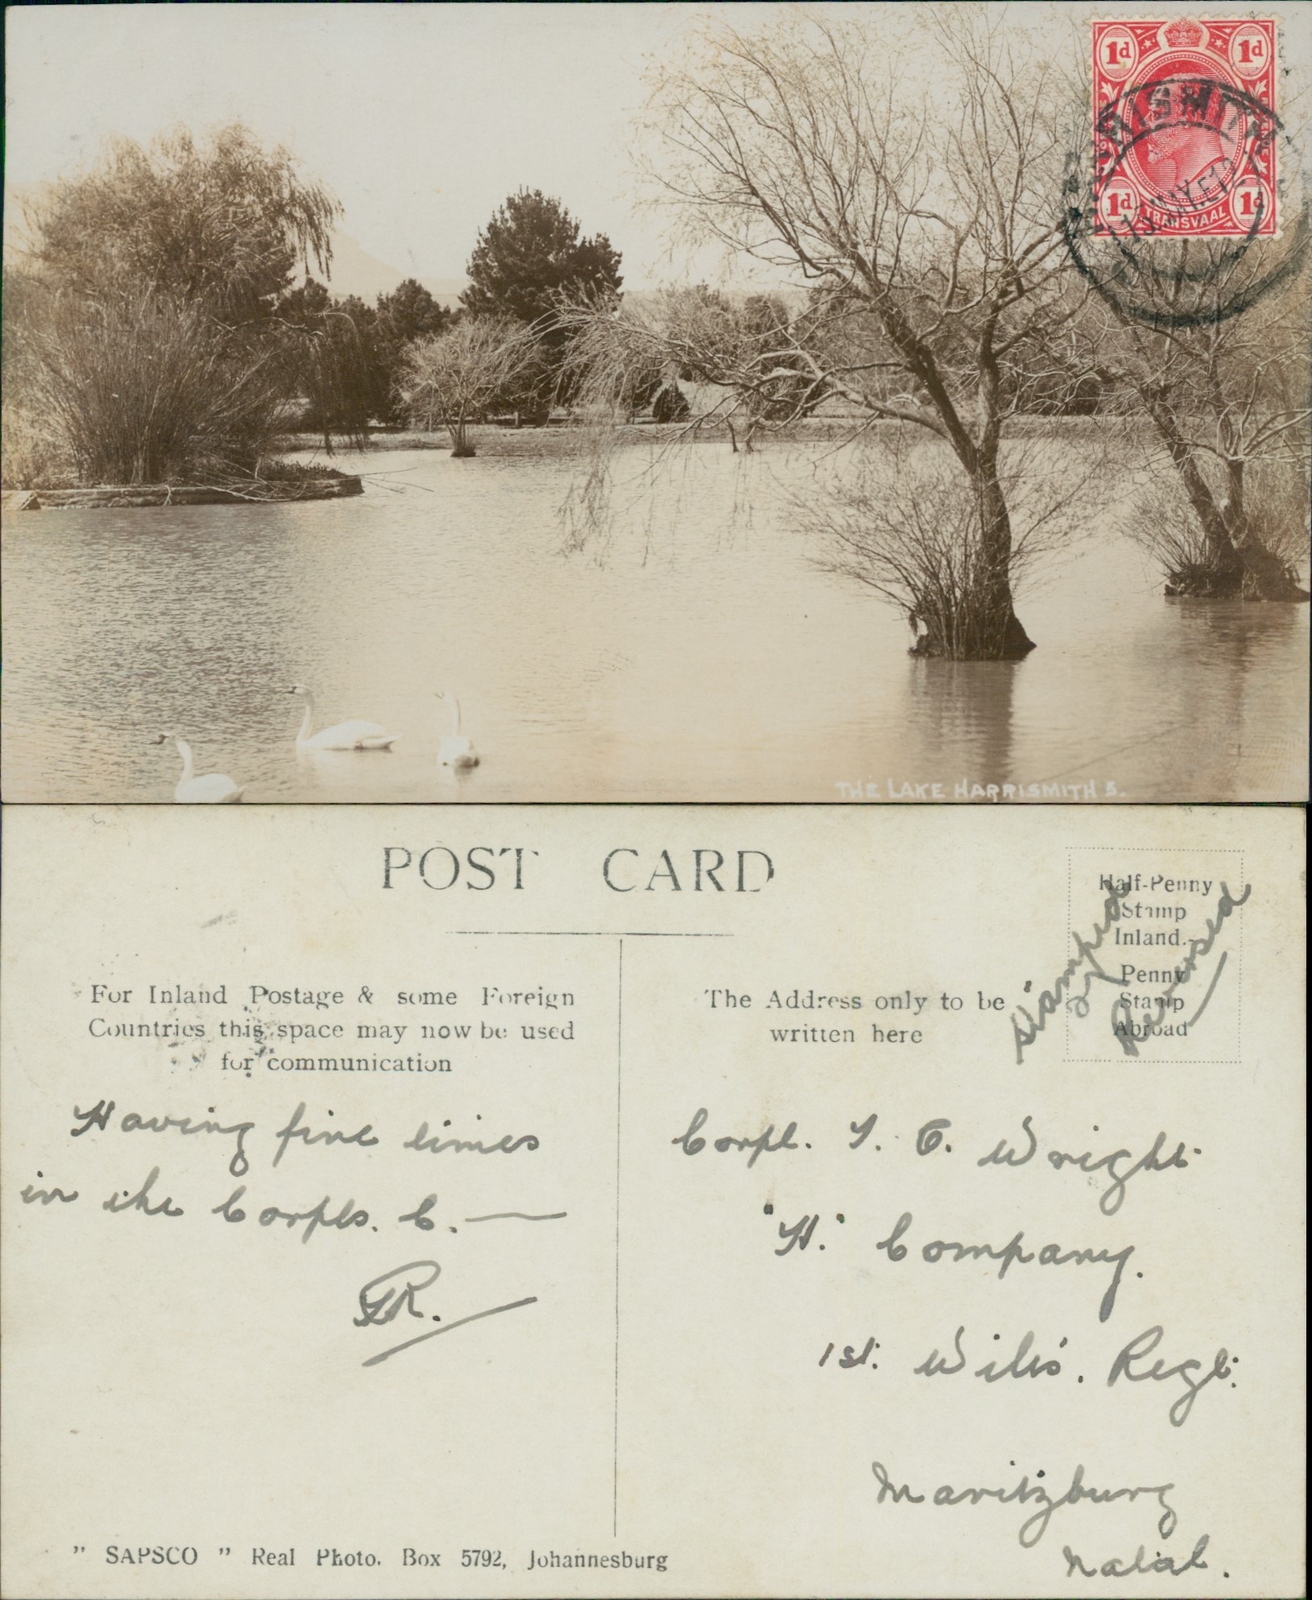 1d 1d
1d 1d
TRANSVAAL
THE LAKE HARRISMITH 5.
POST CARD
Half-Penny
Stamp
Inland.-
Penny
Stamp
Abroad
Stamped
Reversed
For Inland Postage & some Foreign
Countries this space may now be used
for communication
The Address only to be
written here
Having fine times
in the Corpls. C.—
Corpl. Wright
"H." Company.
1st. Wilts. Regt.
Maritzburg
Natal.
" SAPSCO " Real Photo. Box 5792, Johannesburg